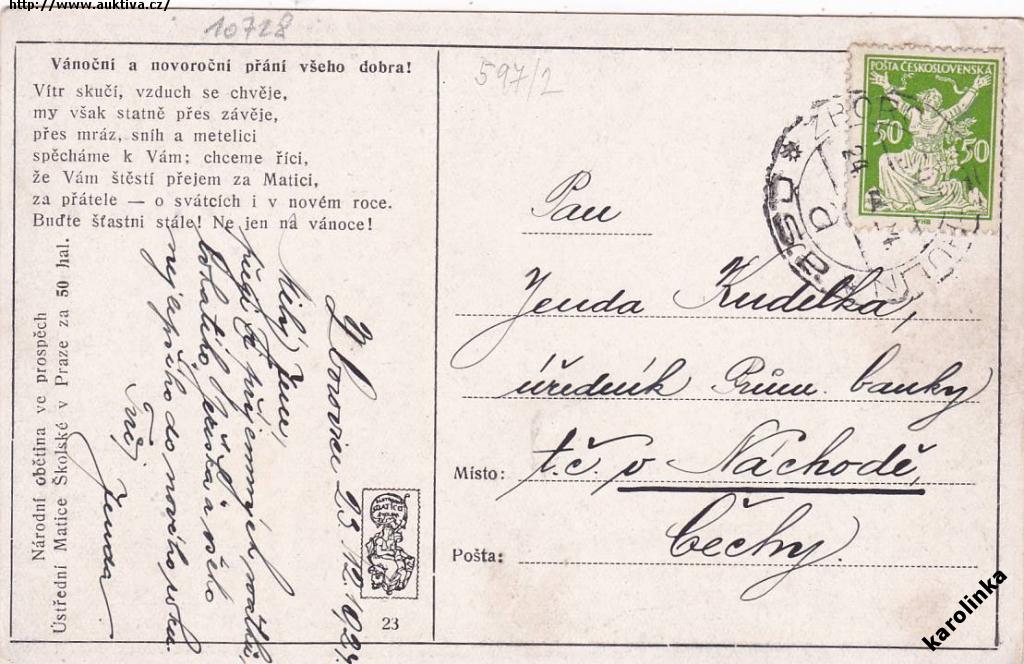 http://www.auktiva.cz/
10728
Vánoční a novoroční přání všeho dobra!
Vítr skučí, vzduch se chvěje,
my však statně přes závěje,
přes mráz, sníh a metelici
spěcháme k Vám; chceme říci,
že Vám štěstí přejem za Matici,
za přátele — o svátcích i v novém roce.
Buďte šťastni stále! Ne jen na vánoce!
Národní obětina ve prospěch
Ústřední Matice Školské v Praze za 50 hal.
23. 12. 1924.
Milý Jendo,
přeji Ti příjemných svátků,
bohatého Ježíška a všeho
nejlepšího do nového roku.
Tvůj
Jenda
23
597/2
POŠTA ČESKOSLOVENSKÁ
50 50
Pan
Jenda Kudelka,
úředník Prům. banky
Místo: t.č. v Náchodě,
Pošta: Čechy.
karolinka